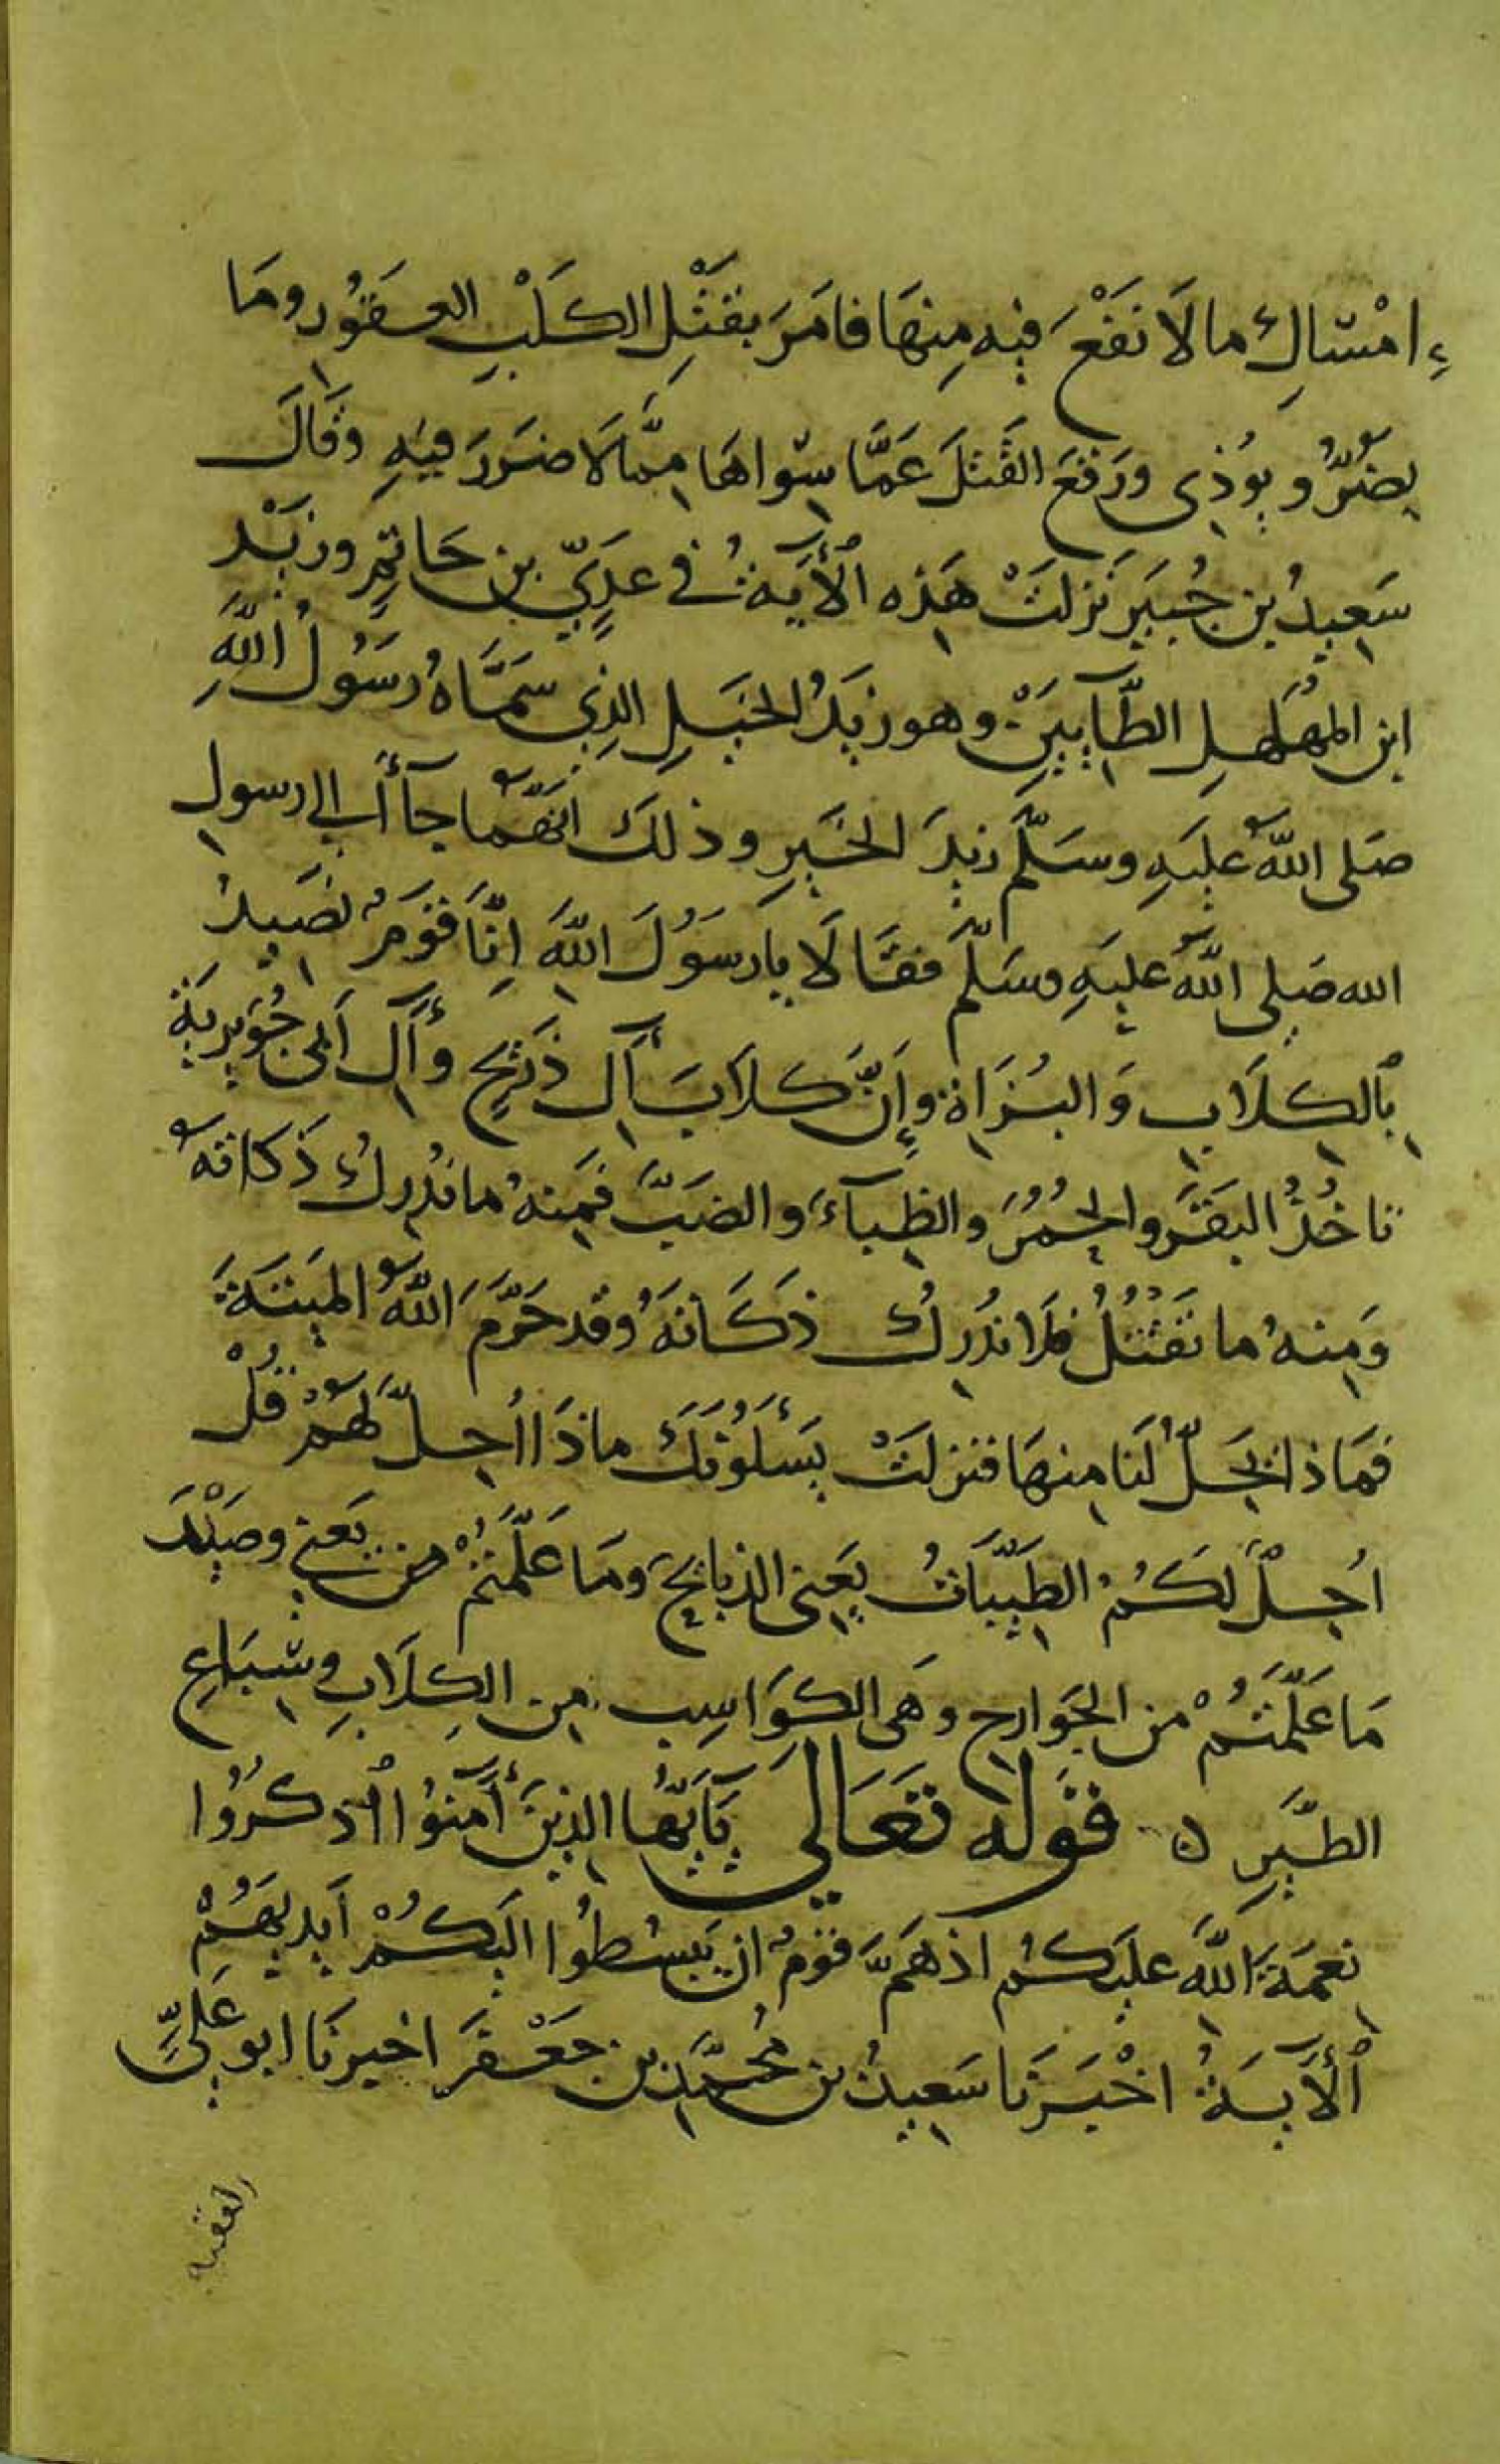 امْسَاكِ ما لَا نَفْعَ فيه مِنهَا فامَرَ بقَتْلِ الكَلْبِ العقُورِ ومَا
يضُرُّ ويُوذِى ورَفَعَ القَتلَ عَمَّا سِواهَا مِمَّا لَا ضرَرَ فيهِ وقَالَ
سَعِيدُ بن جُبَيرٍ نزلتْ هَذه الأيَةُ فى عدِيِّ بن حَاتِمٍ وزَيْد
ابن المهَلهِلِ الطَّاييَيْنِ وهو زيدُ الخيلِ الذِى سَمَّاهُ رسُولُ اللَّهِ
صَلى اللهُ علَيهِ وسَلَّم زيدَ الخَيرِ وذلكَ انَّهُما جآأ الى رسول
الله صَلى اللهُ عليَهِ وسَلَّم فقَالَا يا رَسُولَ اللهِ اِنَّا قَومٌ نصَيدُ
بالكلَابِ وَالبُزَاةِ وإنَّ كلَابَ أل ذَرِيحٍ وأل اَبى جُوَيريَة
تاخُذُ البقَر والحُمُرَ والظِبآءَ والضبَّ فمِنهُ ما نُدرِكُ ذَكاتَهُ
وَمِنهُ ما تقتُلُ فلَا نُدْرِكُ ذكَاتَهُ وقد حَرَّمَ اللَّهُ الميتَةَ
فمَاذا يَحِلُّ لَنا مِنهَا فنزلَتْ يَسْئَلُونَكَ ماذَا اُحِلَّ لَهُمْ قُلْ
اُحِلَّ لكُمُ الطَيِّبَاتُ يعَنِى الذبايحَ ومَا عَلَّمْتُمْ من يَعنِى وصَيْدَ
مَا عَلَّمتُمْ من الجَوارح وهَى الكوَاسِب من الكِلَابِ وسِبَاعِ
الطَّيرِ ه قَوله تعَالى يَأيُّها الذِينَ أمَنُوا اذكُرُوا
نِعمَةَ اللَّهِ عليَكُم اذ هَمَّ قومٌ ان يَبسُطُوا اليَكُمْ اَيدِيهَُمْ
الأَيَةُ اخْبَرَنَا سَعِيدُ بن مُحمَّدِ بن جَعْفرٍ اخبرنَا ابو عَلىٍّ
الفقيه